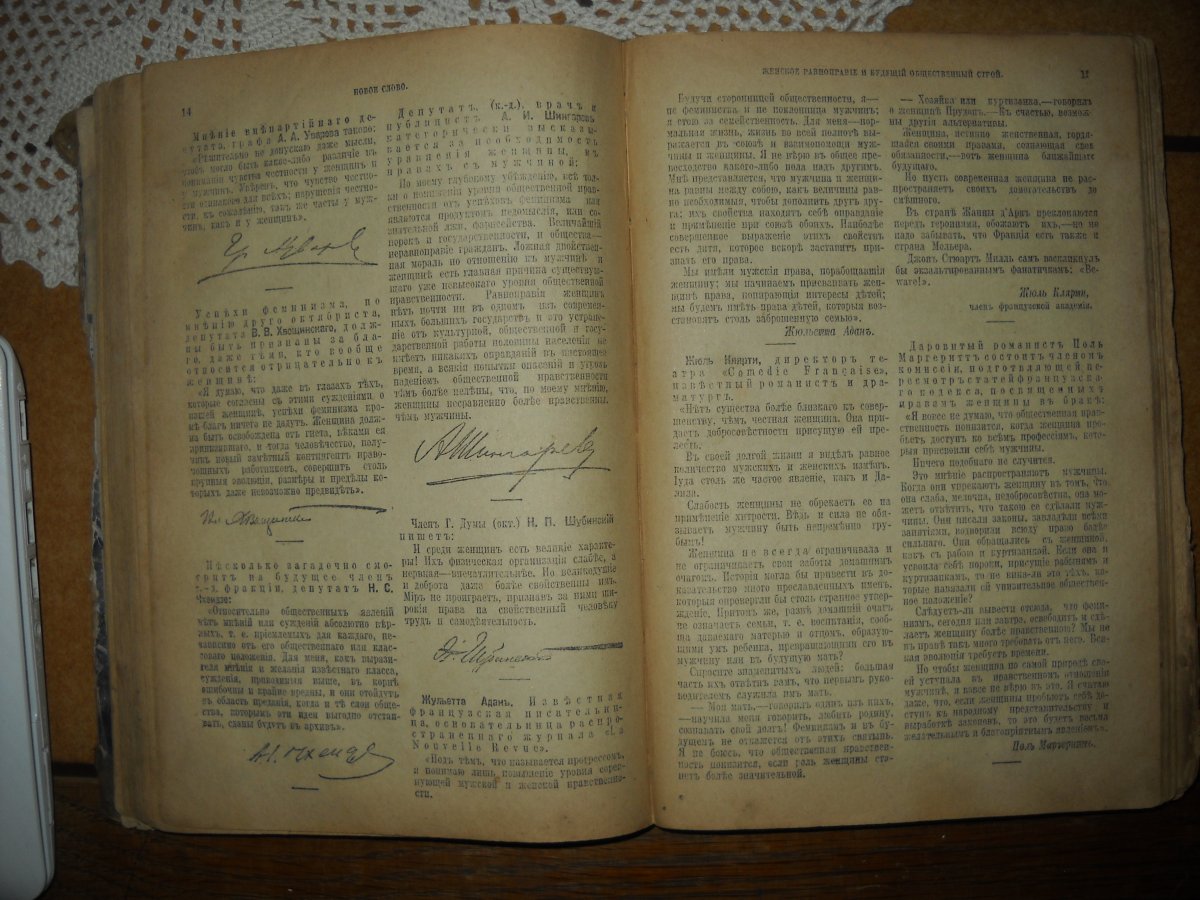 14
НОВОЕ СЛОВО.
Мнѣніе внѣпартійнаго де-
путата, графа А. А. Уварова таково:
«Рѣшительно не допускаю даже мысли,
чтобъ могло быть какое-либо различіе въ
пониманіи чувства честности у женщинъ и
у мужчинъ. Увѣренъ, что чувство честно-
сти одинаково для всѣхъ; нарушенія честно-
сти, къ сожалѣнію, такъ же часты у муж-
чинъ, какъ и у женщинъ».
Гр. Уваровъ
Успѣхи феминизма, по
мнѣнію друго октябриста,
депутата В. В. Хвощинскаго, долж-
ны быть признаны за бла-
го, даже тѣми, кто вообще
относится отрицательно къ
женщинѣ:
«Я думаю, что даже въ глазахъ тѣхъ,
которые согласны съ этими сужденіями о
нашей женщинѣ, успѣхи феминизма кро-
мѣ благъ ничего не дадутъ. Женщина долж-
на быть освобождена отъ гнета, вѣками ея
принижавшаго, и тогда человѣчество, полу-
чивъ новый замѣтный контингентъ право-
мощныхъ работниковъ, совершитъ столь
крупныя эволюціи, размѣры и предѣлы ко-
торыхъ даже невозможно предвидѣть».
Хвощинскій
Нѣсколько загадочно смо-
тритъ на будущее членъ
с.-д. фракціи, депутатъ Н. С.
Чхеидзе:
«Относительно общественныхъ явленій
нѣтъ мнѣній или сужденій абсолютно вѣр-
ныхъ, т. е. пріемлемыхъ для каждаго, не-
зависимо отъ его общественнаго или клас-
соваго положенія. Для меня, какъ вырази-
теля мнѣнія и желанія извѣстнаго класса,
сужденія, приводимыя выше, въ корнѣ
ошибочны и крайне вредны, и они отойдутъ
въ область преданія, когда и тѣ слои обще-
ства, которымъ эти идеи выгодно отстаи-
вать, сданы будутъ въ архивъ».
Чхеидзе
Депутатъ (к.-д.), врачъ и
публицистъ А. И. Шингаревъ
категорически высказы-
вается за необходимость
уравненія женщины, въ
правахъ съ мужчиной:
По моему глубокому убѣжденію, всѣ тол-
ки о пониженіи уровня общественной нрав-
ственности отъ успѣховъ феминизма или
являются продуктомъ недомыслія, или со-
знательной лжи, фарисейства. Величайшій
порокъ и государственности, и общества—
неравноправіе гражданъ. Ложная двойствен-
ная мораль по отношенію къ мужчинѣ и
женщинѣ есть главная причина существую-
щаго уже невысокаго уровня общественной
нравственности. Равноправія женщинъ
нѣтъ почти ни въ одномъ изъ современ-
ныхъ большихъ государствъ и это устране-
ніе отъ культурной, общественной и госу-
дарственной работы половины населенія не
имѣетъ никакихъ оправданій въ настоящее
время, а всякія попытки опасеній и угрозъ
паденіемъ общественной нравственности
тѣмъ болѣе нелѣпы, что, по моему мнѣнію,
женщины несравненно болѣе нравственны,
чѣмъ мужчины.
А. Шингаревъ
Членъ Г. Думы (окт.) Н. П. Шубинскій
пишетъ:
И среди женщинъ есть великіе характе-
ры! Ихъ физическая организація слабѣе, а
нервная—впечатлительнѣе. Но великодушіе
и доброта даже болѣе свойственны имъ.
Міръ не проиграетъ, признавъ за ними ши-
рокія права на свойственный человѣку
трудъ и самодѣятельность.
Н. Шубинскій
Жульетта Аданъ. Извѣстная
французская писательни-
ца, основательница распро-
страненнаго журнала «La
Nouvelle Revue».
«Подъ тѣмъ, что называется прогрессомъ,
я понимаю лишь повышеніе уровня сорев-
нующей мужской и женской нравственно-
сти.
ЖЕНСКОЕ РАВНОПРАВІЕ И БУДУЩІЙ ОБЩЕСТВЕННЫЙ СТРОЙ.
Будучи сторонницей общественности, я—
не феминистка и не поклонница мужчинъ;
я стою за семейственность. Для меня—нор-
мальная жизнь, жизнь во всей полнотѣ вы-
ражается въ союзѣ и взаимопомощи мужчи-
ны и женщины. Я не вѣрю въ общее пре-
восходство какого-либо пола надъ другимъ.
Мнѣ представляется, что мужчина и женщи-
на равны между собою, какъ величины рав-
но необходимыя, чтобы дополнить другъ дру-
га; ихъ свойства находятъ себѣ оправданіе
и примѣненіе при союзѣ обоихъ. Наиболѣе
совершенное выраженіе этихъ свойствъ
есть дитя, которое вскорѣ заставитъ при-
знать его права.
Мы имѣли мужскія права, порабощавшія
женщину; мы начинаемъ присваивать жен-
щинѣ права, попирающія интересы дѣтей;
мы будемъ имѣть права дѣтей, которыя воз-
становятъ столь заброшенную семью».
Жюльетта Аданъ.
Жюль Клярти, директоръ те-
атра «Comedie Française»,
извѣстный романистъ и дра-
матургъ.
«Нѣтъ существа болѣе близкаго къ совер-
шенству, чѣмъ честная женщина. Она при-
даетъ добросовѣстности присущую ей пре-
лесть.
Въ своей долгой жизни я видѣлъ равное
количество мужскихъ и женскихъ измѣнъ.
Іуда столь же частое явленіе, какъ и Да-
лила.
Слабость женщины не обрекаетъ ее на
примѣненіе хитрости. Вѣдь и сила не обя-
зываетъ мужчину быть непремѣнно гру-
бымъ!
Женщина не всегда ограничивала и
не ограничиваетъ свои заботы домашнимъ
очагомъ. Исторія могла бы привести въ до-
казательство много прославленныхъ именъ,
которыя опровергли бы столь странное утвер-
жденіе. Притомъ же, развѣ домашній очагъ
не означаетъ семьи, т. е. воспитанія, сообща
даваемаго матерью и отцомъ, образую-
щими умъ ребенка, превращающимъ его въ
мужчину или въ будущую мать?
Спросите знаменитыхъ людей: большая
часть ихъ отвѣтитъ вамъ, что первымъ руко-
водителемъ служила имъ мать.
— Моя мать,—говорилъ одинъ изъ нихъ,
—научила меня говорить, любить родину,
сознавать свой долгъ! Феминизмъ и въ бу-
дущемъ не откажется отъ этихъ святынь.
Я не боюсь, что общественная нравствен-
ность понизится, если роль женщины ста-
нетъ болѣе значительной.
— Хозяйка или куртизанка,—говорилъ
о женщинѣ Прудонъ.—Къ счастью, возмож-
ны другія альтернативы.
Женщина, истинно женственная, гордя-
щаяся своими правами, сознающая свои
обязанности,—вотъ женщина ближайшаго
будущаго.
Но пусть современная женщина не рас-
пространяетъ своихъ домогательствъ до
смѣшного.
Въ странѣ Жанны д'Аркъ преклоняются
передъ героинями, обожаютъ ихъ,—но не
надо забывать, что Франція есть также и
страна Мольера.
Джонъ Стюартъ Милль самъ воскликнулъ
бы экзальтированнымъ фанатичкамъ: «Be-
ware!».
Жюль Клярти,
членъ французской академіи.
Даровитый романистъ Поль
Маргеритъ состоитъ членомъ
комиссіи, подготовляющей пе-
ресмотръ статей французска-
го кодекса, посвященныхъ
правамъ женщины въ бракѣ:
«Я вовсе не думаю, что общественная нрав-
ственность понизится, когда женщина про-
бьетъ доступъ ко всѣмъ профессіямъ, кото-
рыя присвоили себѣ мужчины.
Ничего подобнаго не случится.
Это мнѣніе распространяютъ мужчины.
Когда они упрекаютъ женщину въ томъ, что
она слаба, мелочна, недобросовѣстна, она мо-
жетъ отвѣтить, что такою ее сдѣлали мужчи-
ны. Они писали законы, завладѣли всѣми
занятіями, водворили всюду право болѣе
сильнаго. Они обращались съ женщиной,
какъ съ рабою и куртизанкой. Если она и
усвоила себѣ пороки, присущіе рабынямъ и
куртизанкамъ, то не вина-ли это тѣхъ, ко-
торые навязали ей унизительное обществен-
ное положеніе?
Слѣдуетъ-ли вывести отсюда, что феми-
низмъ, сегодня или завтра, освободитъ и сдѣ-
лаетъ женщину болѣе нравственною? Мы не
въ правѣ такъ много требовать отъ него. Вся-
кая эволюція требуетъ времени.
Но чтобы женщина по самой природѣ сво-
ей уступала въ нравственномъ отношеніи
мужчинѣ, я вовсе не вѣрю въ это. Я считаю
даже, что, если женщины пробьютъ себѣ до-
ступъ къ народному представительству и
выработкѣ законовъ, то это будетъ весьма
желательнымъ и благопріятнымъ явленіемъ».
Поль Маргеритъ.